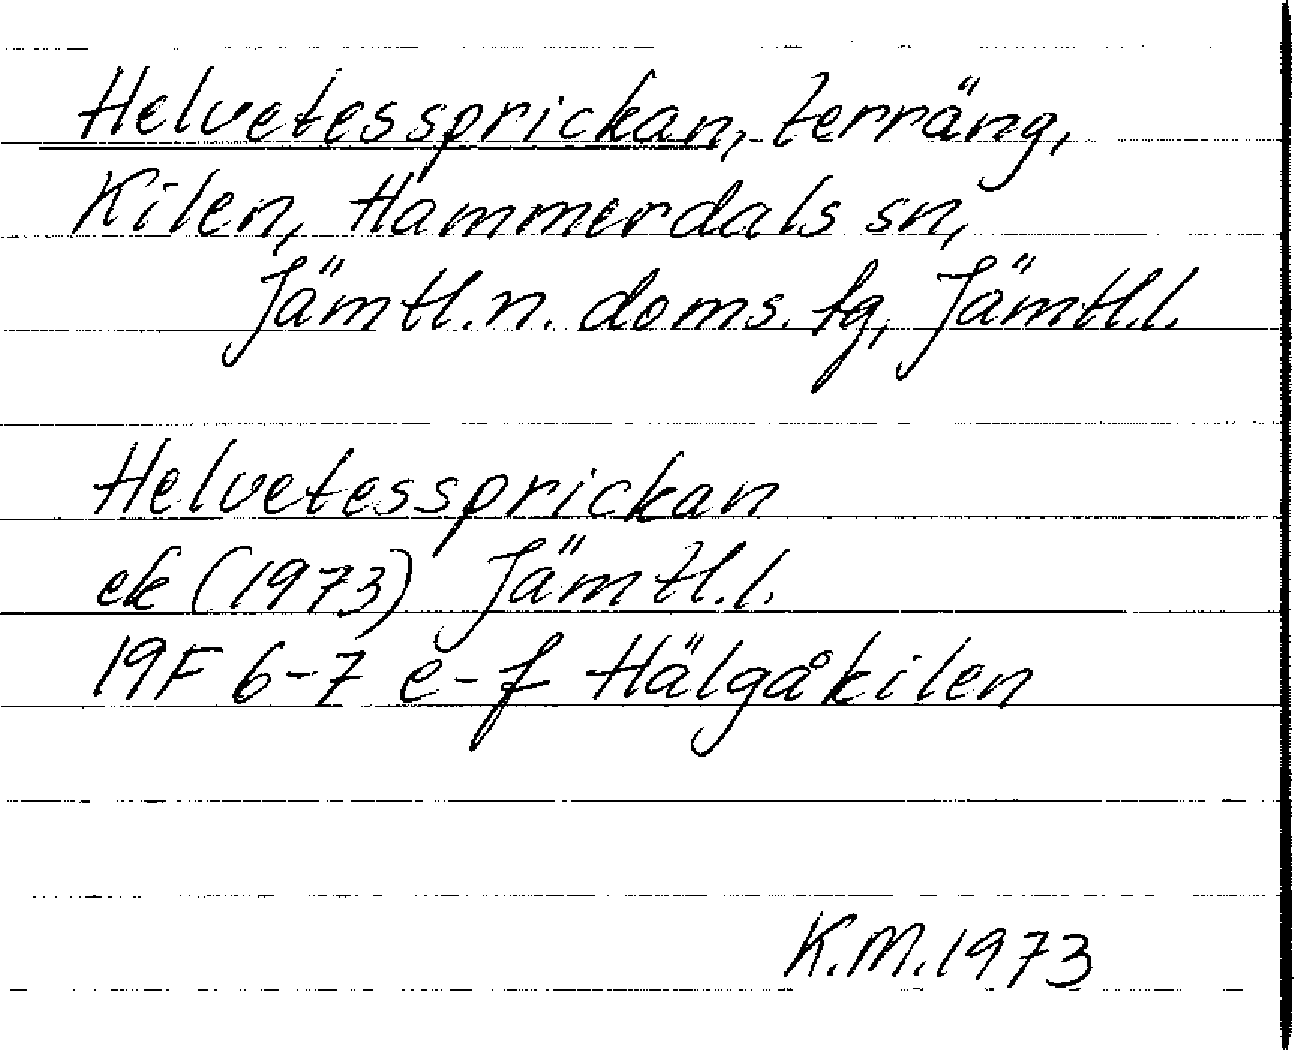 Helvetessprickan, terräng,
Kilen, Hammerdals sn,
Jämtl.n. doms. tg, Jämtl.l.
Helvetessprickan
ek (1973) Jämtl.l.
19F 6-7 e-f Hälgåkilen
K.M.1973